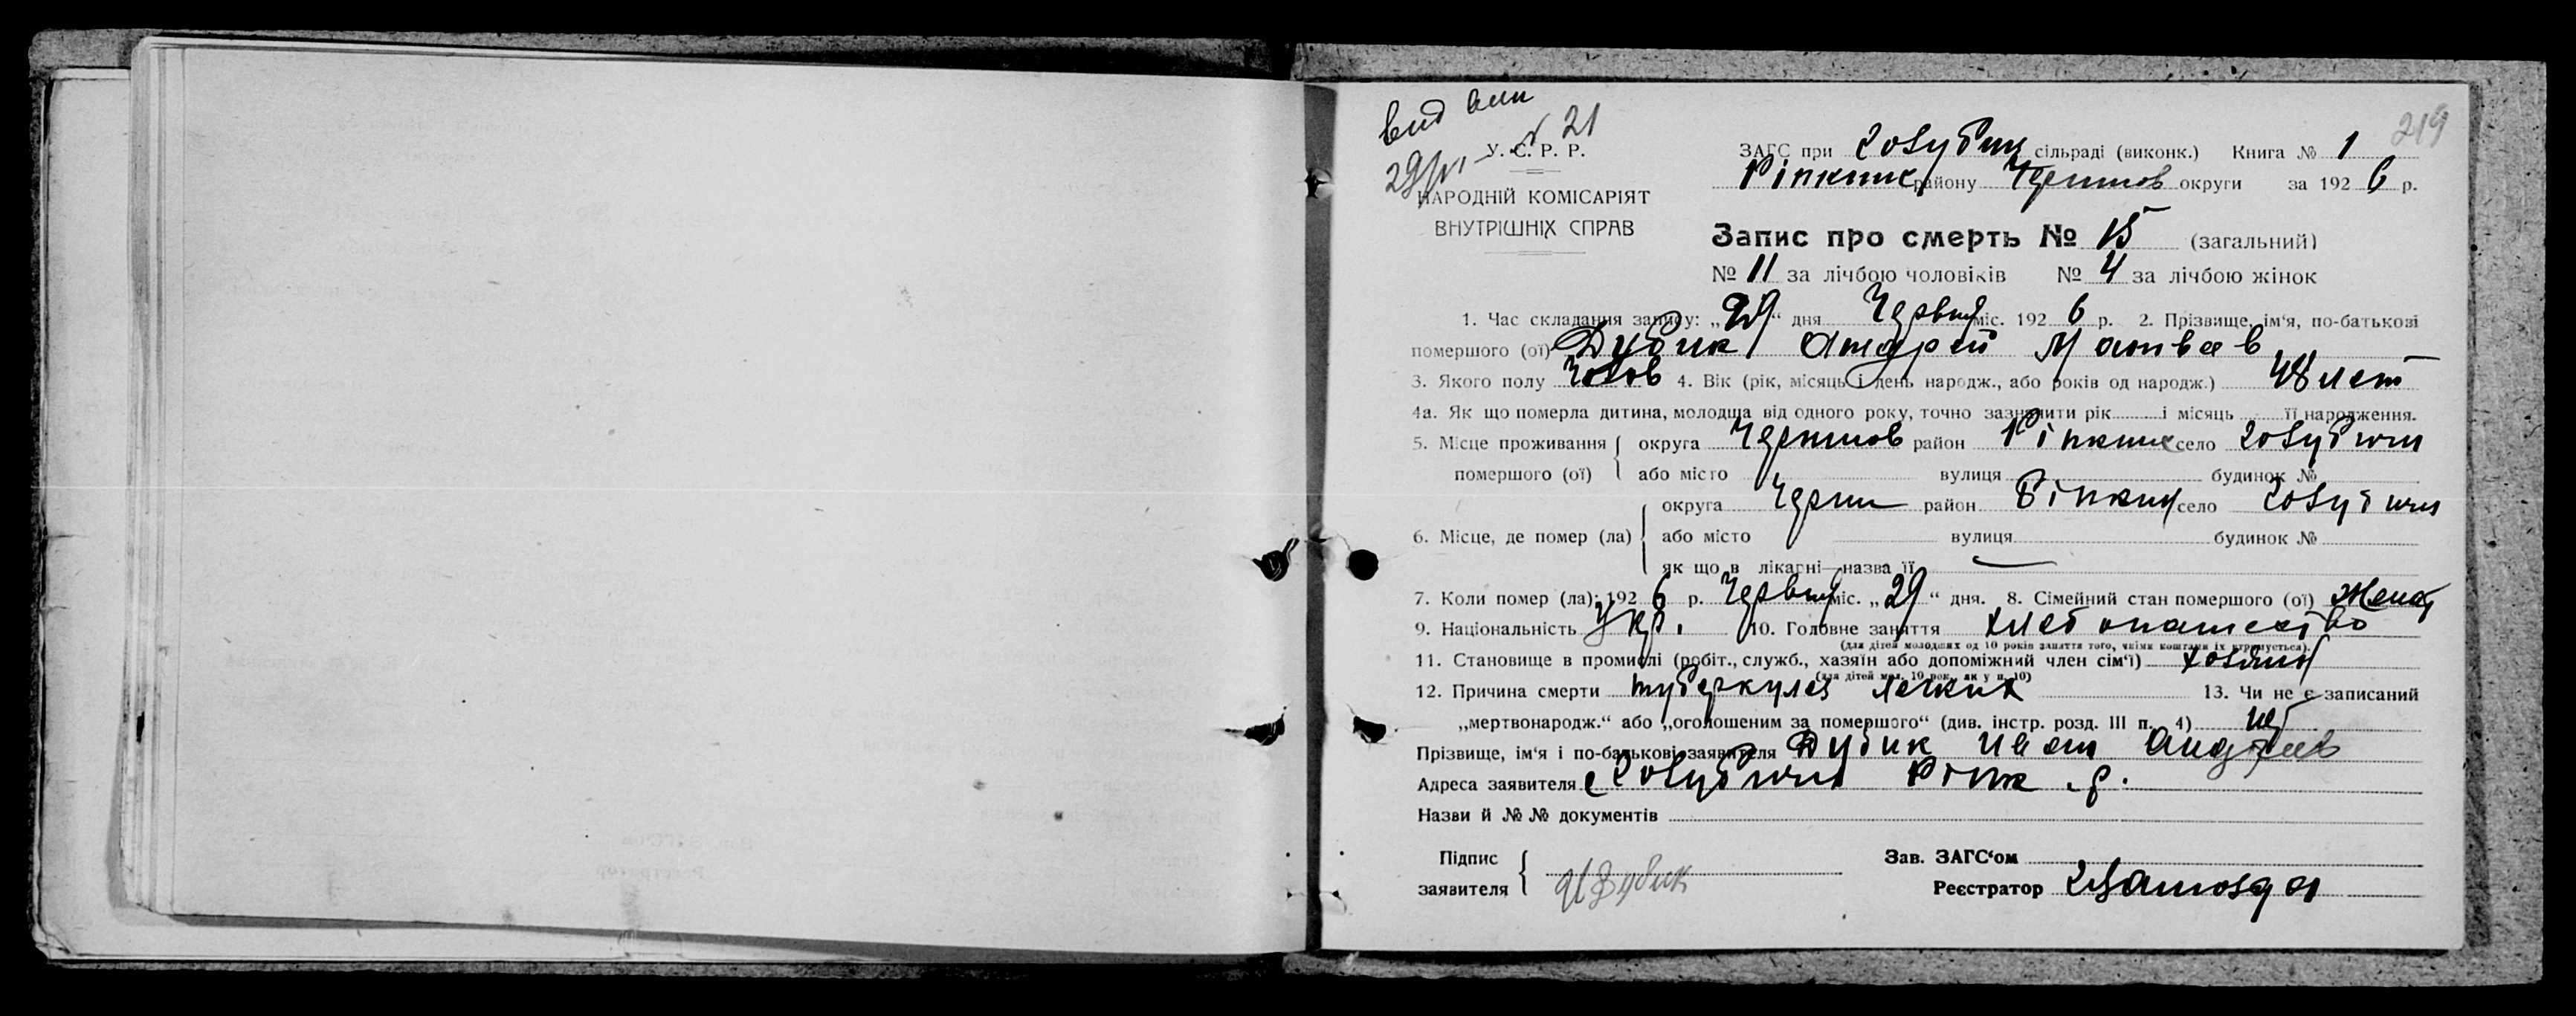 вид вип
29/VI – № 21
219
У. С. Р. Р.
НАРОДНІЙ КОМІСАРІЯТ
ВНУТРІШНІХ СПРАВ
ЗАГС при Голубич сільраді (виконк.) Книга № 1
Ріпкинс району Чернигов округи за 192 6 р.
Запис про смерть № 15 (загальний)
№ 11 за лічбою чоловіків № 4 за лічбою жінок
1. Час складання запису: „29“ дня Червня міс. 192 6 р. 2. Прізвище, ім‘я, по-батькові
помершого (ої) Дубик Андрей Матвеев
3. Якого полу Чолов 4. Вік (рік, місяць і день народж., або років од народж.) 48 лет
4а. Як що померла дитина, молодша від одного року, точно зазначити рік і місяць її народження.
5. Місце проживання помершого (ої) { округа Чернигов район Ріпкинс село Голубичи
або місто вулиця будинок №
6. Місце, де помер (ла) { округа Черни район Ріпкин село Голубичи
або місто вулиця будинок №
як що в лікарні—назва її —
7. Коли помер (ла): 192 6 р. Червня міс. „29“ дня. 8. Сімейний стан помершого (ої) Женат
9. Національність Укр. 10. Головне заняття хлебопашество
(для дітей молодших од 10 років заняття того, чиїми коштами їх утримується).
11. Становище в промислі (робіт., служб., хазяїн або допоміжний член сім‘ї) хозяин
(для дітей мол. 10 рок., як у п. 10)
12. Причина смерти туберкулез легких 13. Чи не є записаний
„мертвонародж.“ або „оголошеним за помершого“ (див. інстр. розд. III п. 4) нет
Прізвище, ім‘я і по-батькові заявителя Дубик Иван Андреев
Адреса заявителя с Голубичи Ріпк р.
Назви й №№ документів
Підпис заявителя { И Дубик
Зав. ЗАГС‘ом
Реєстратор